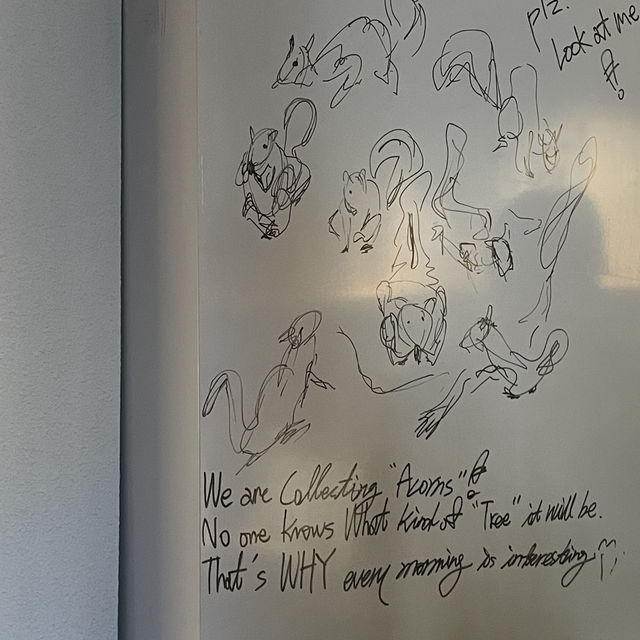 plz.
Look at me
!
We are Collecting "Acorns"!
No one knows What kind of "Tree" it will be.
That's WHY every morning is interesting